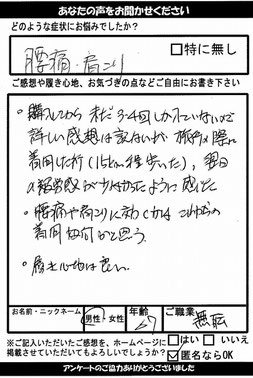 あなたの声をお聞かせください
どのような症状にお悩みでしたか?
腰痛・肩こり
□特に無し
ご感想や履き心地、お気づきの点などご自由にお書き下さい
・購入してから まだ3〜4回しかはいていないので
詳しい感想は 旅行の際に
着用した所(15km程歩いた)、翌日
の疲労感が少なかったように感じた
・腰痛や肩こりに効くかは これからの
着用 かと思う。
・履き心地は良い。
お名前・ニックネーム
男性・女性
年齢
67
ご職業
無職
※ご記入いただいたご感想を、ホームページに
掲載させていただいてもよろしいでしょうか?
□はい □いいえ
☑匿名ならOK
アンケートのご協力ありがとうございました